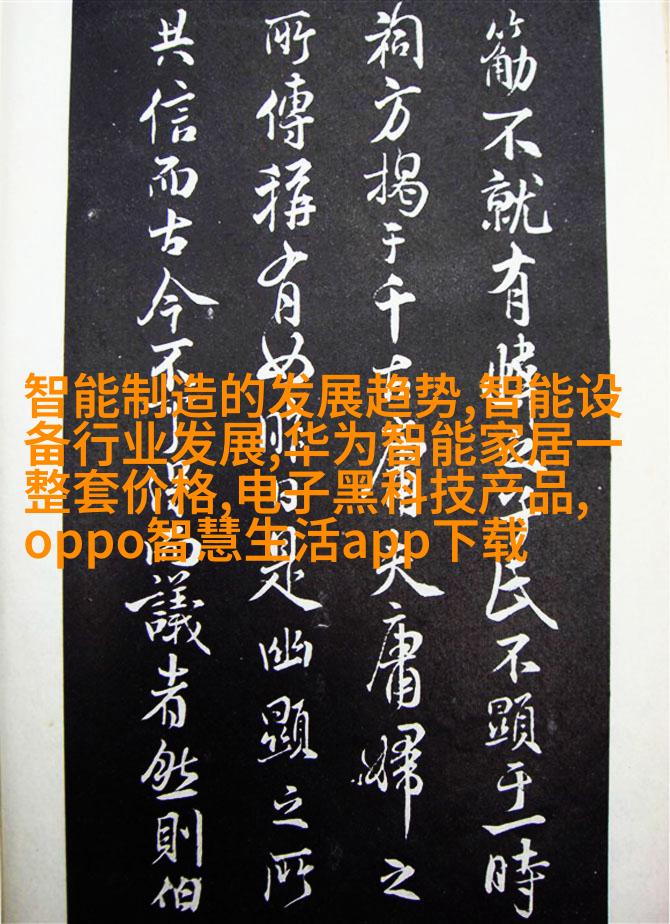 不就有之民不顯于一時
祠方揭于千古庸夫庸婦之
所傳稱有如日是幽顯之所
共信而古今不而議者然則伯
智能制造的发展趋势,智能设
备行业发展,华为智能家居一
整套价格,电子黑科技产品,
oppo智慧生活app下载